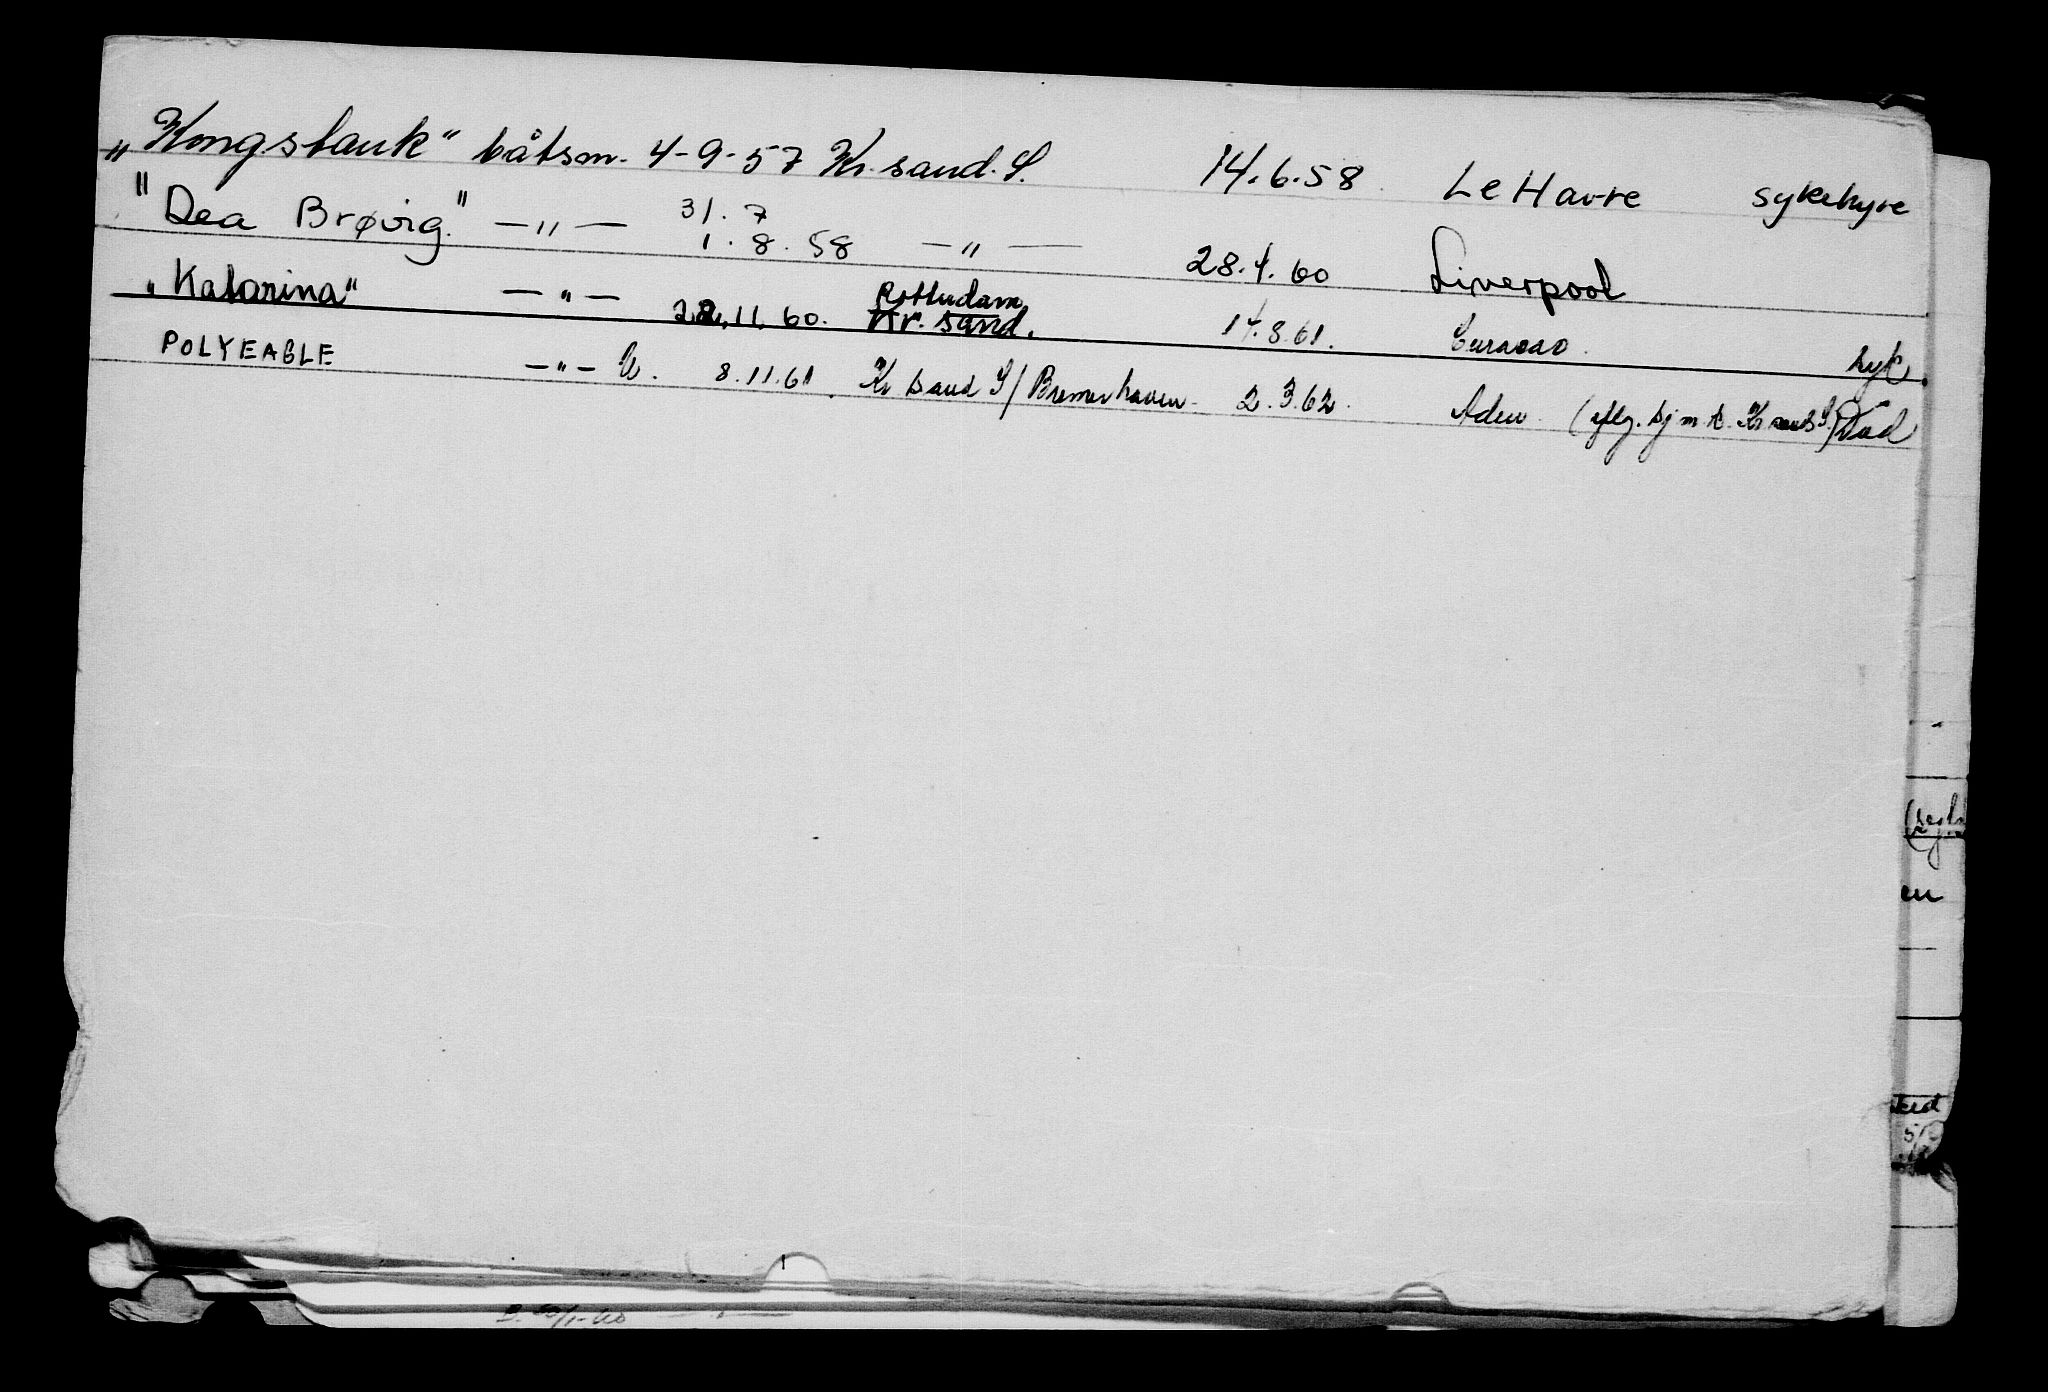 „Kongstank“ båtsm. 4-9-57 Kr.sand.S. 14.6.58 Le Havre sykehyre
"Dea Brøvig." —"— 31.7
1.8.58 —"— 28.4.60 Liverpool
"Katarina" —"— 22.11.60. Rotterdam
Kr.sand. 14.8.61. Curacao. syk
POLYEAGLE —"— U. 8.11.61 Kr sand S/Bremerhaven 2.3.62. Aden (iflg. sjm k. Kr sand S.) Død